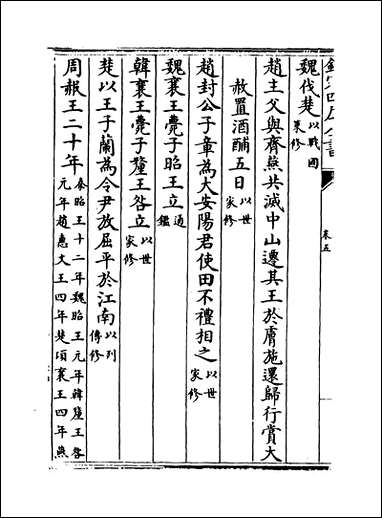 欽定四庫全書
卷五
魏伐楚以戰國策修
趙主父與齊燕共滅中山遷其王於膚施還歸行賞大
赦置酒酺五日以世家修
趙封公子章為大安陽君使田不禮相之以世家修
魏襄王薨子昭王立通鑑
韓襄王薨子釐王咎立以世家修
楚以王子蘭為令尹放屈平於江南以列傳修
周赧王二十年秦昭王十二年魏昭王元年韓釐王咎元年趙惠文王四年楚頃襄王四年燕